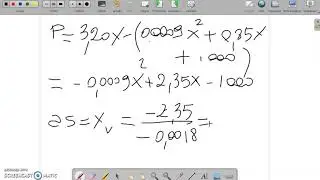 P = 3,20x - (0,0009x² + 0,85x
+ 1000)
= -0,0009x² + 2,35x - 1000
as = xᵥ = -2,35 / -0,0018 =
RECORDED WITH
SCREENCAST-O-MATIC